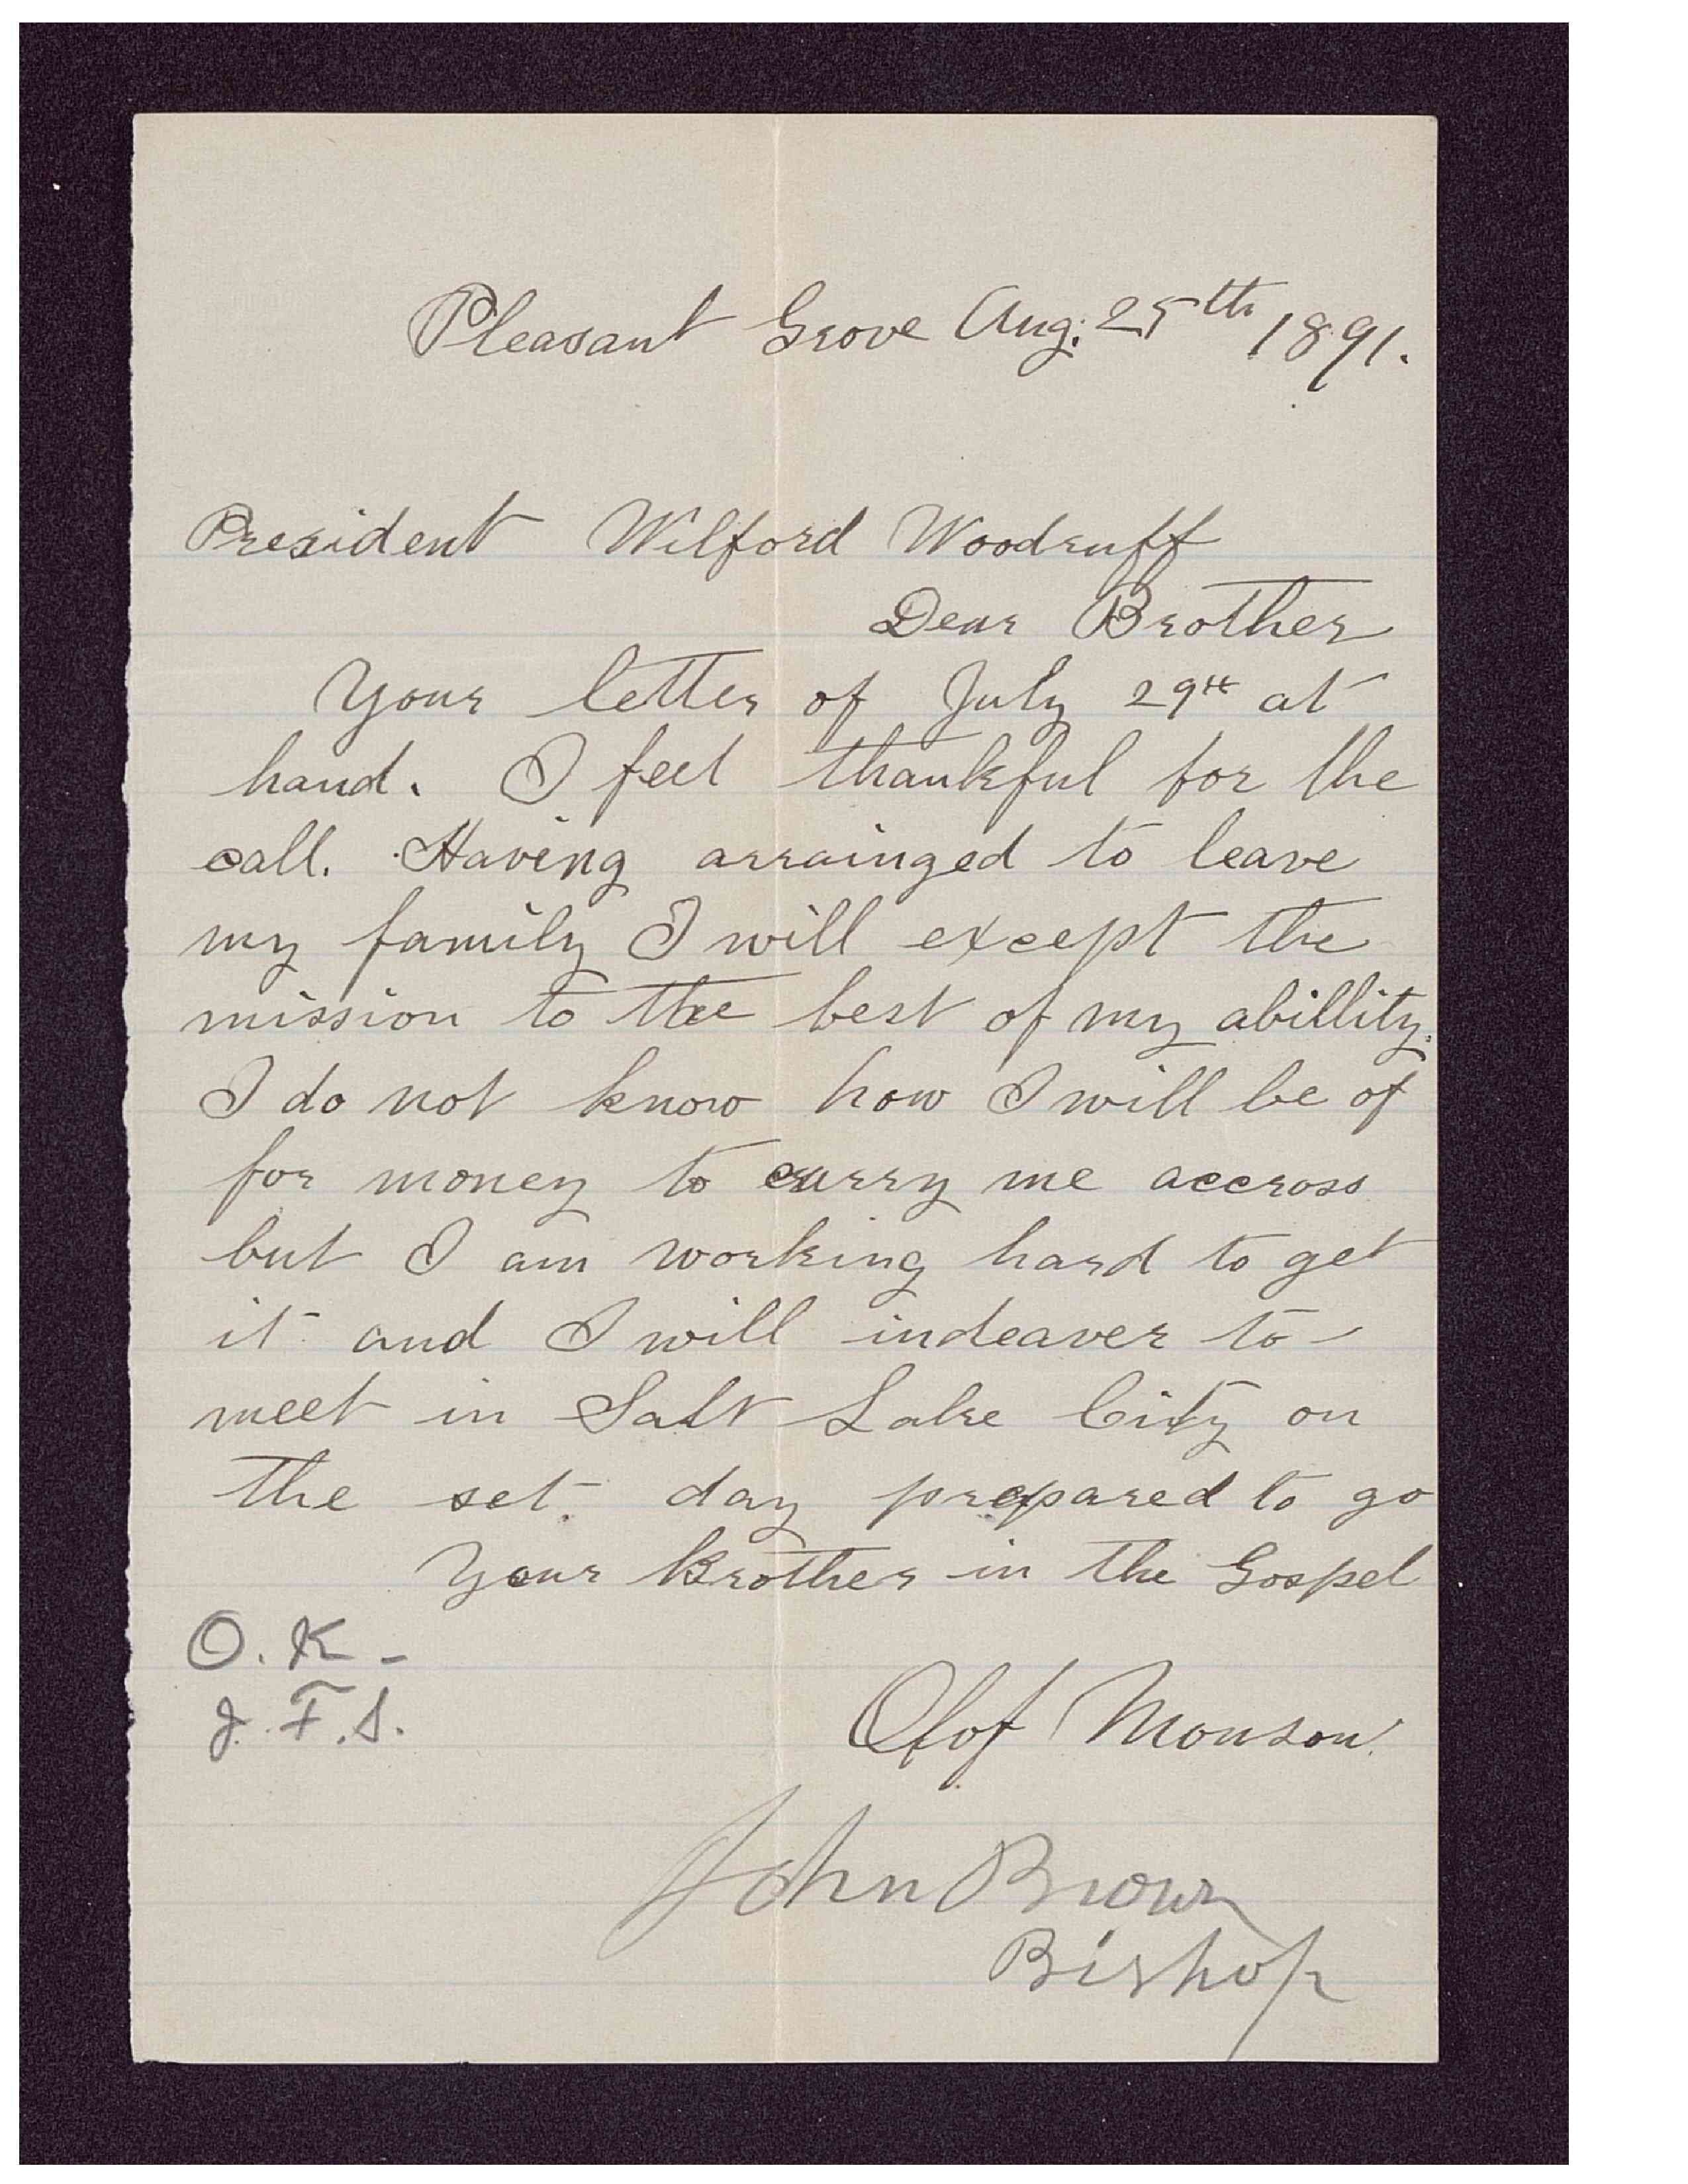 Pleasant Grove Aug. 25th 1891.
President Wilford Woodruff
Dear Brother
Your letter of July 29th at
hand. I feel thankful for the
call. Having arrainged to leave
my family I will except the
mission to the best of my abillity.
I do not know how I will be of
for money to carry me accross
but I am working hard to get
it and I will indeaver to
meet in Salt Lake City on
the set day prepared to go
Your Brother in the Gospel
O. K -
J. F. S.
Olof Monson
John Brown
Bishop